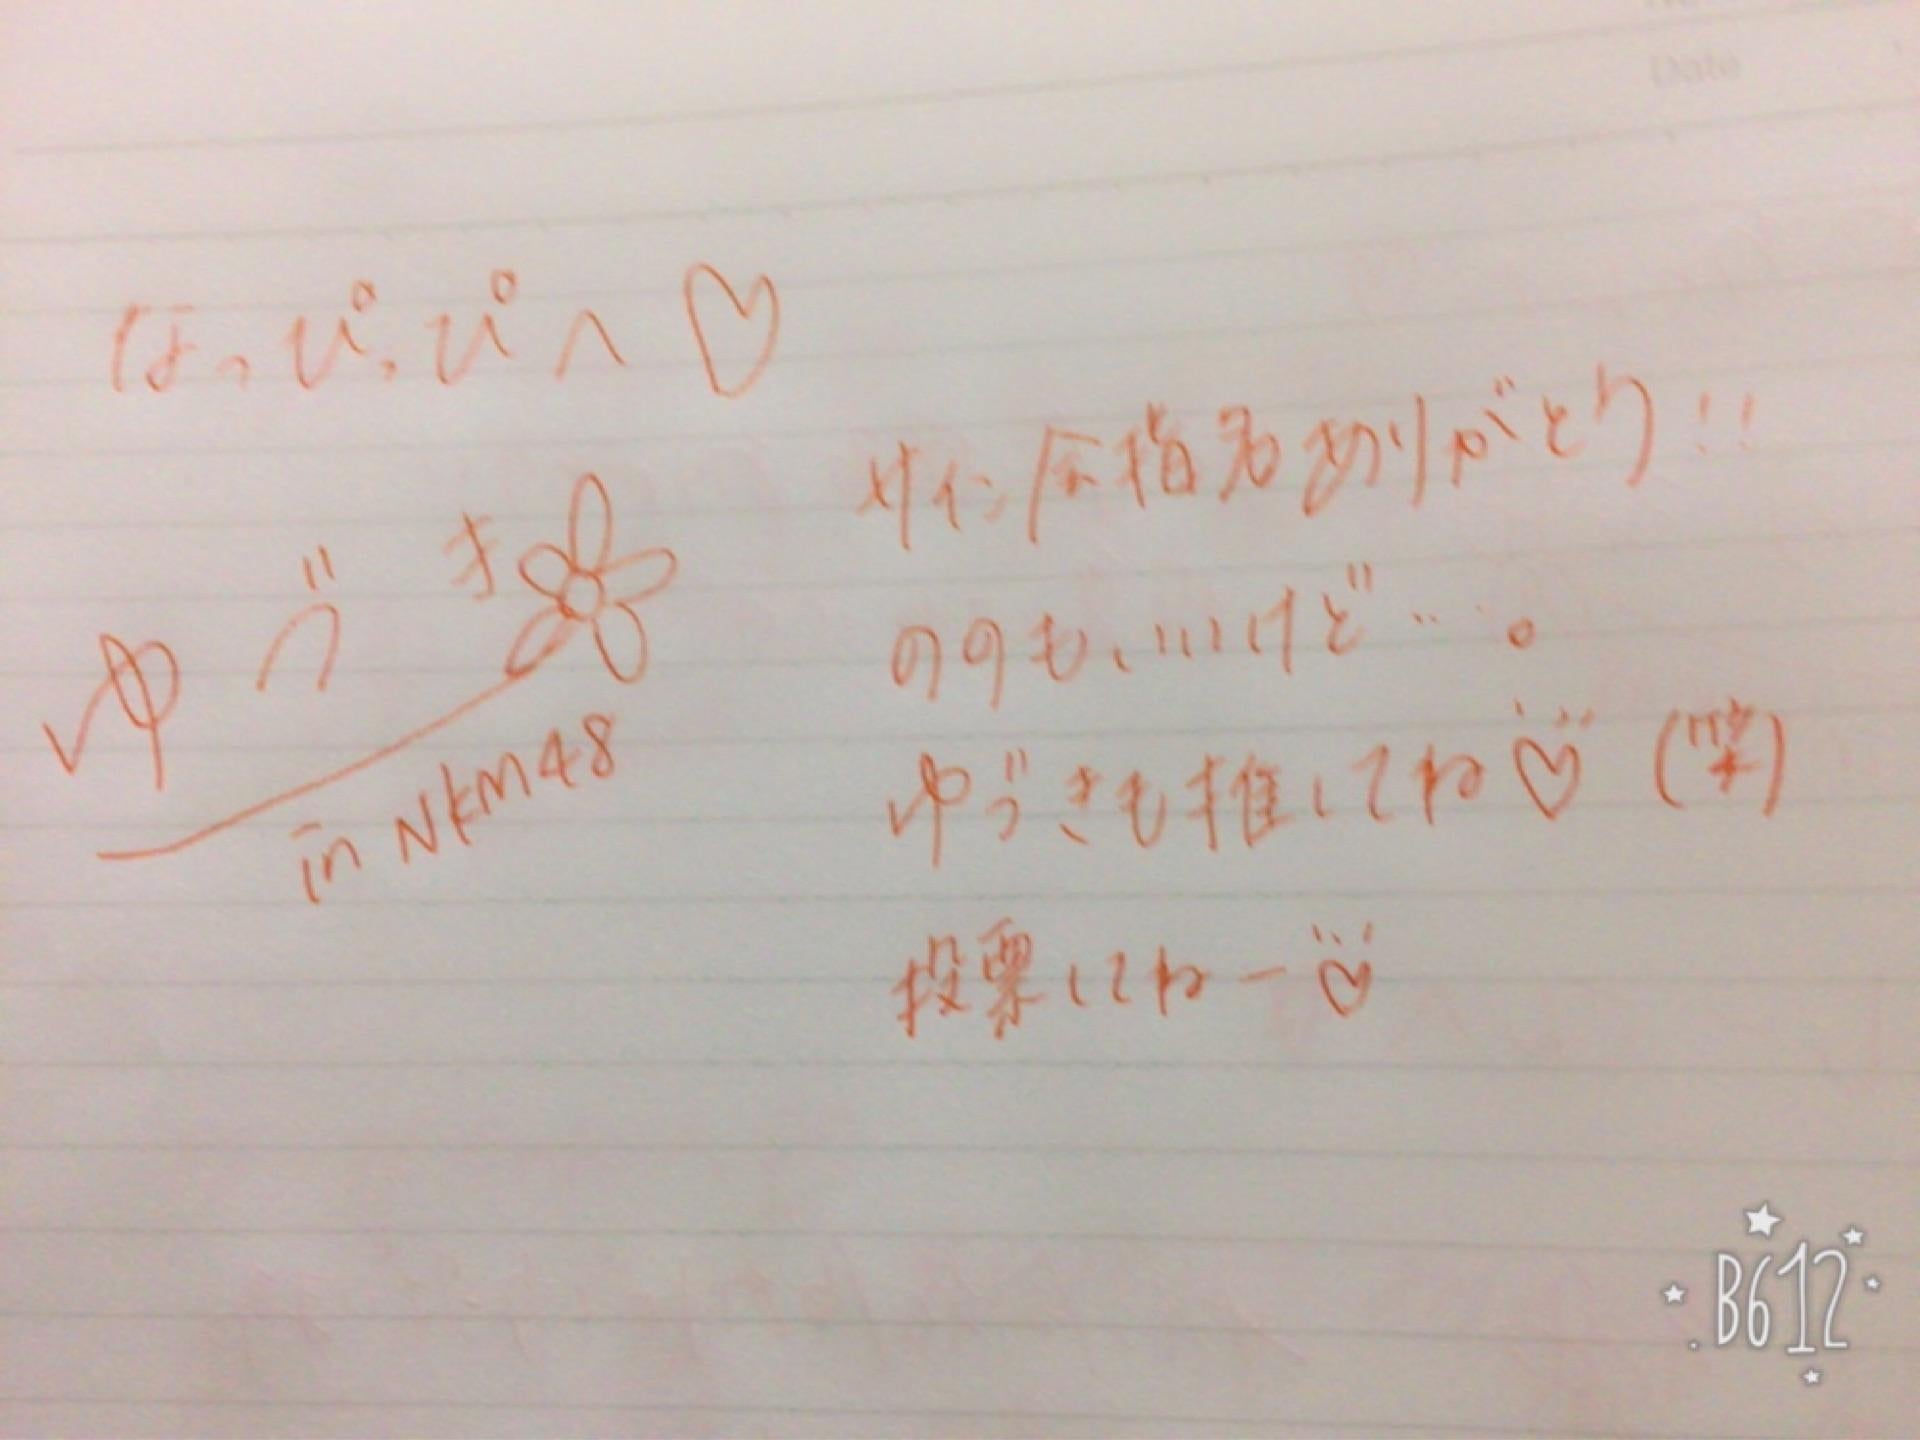 Date
ほっぴっぴへ♡
ゆづき
in NKM48
サイン会指名ありがとう!!
ののもいいけど…。
ゆづきも推してね♡(笑)
投票してねー♡
B612